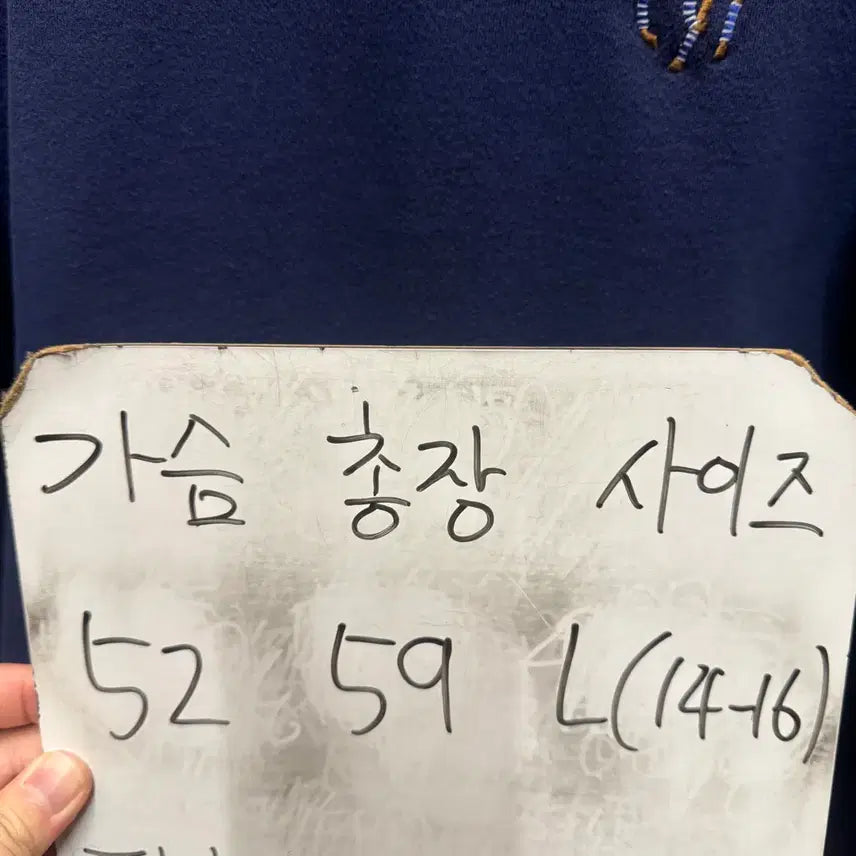 가슴 총장 사이즈
52 59 L(14-16)